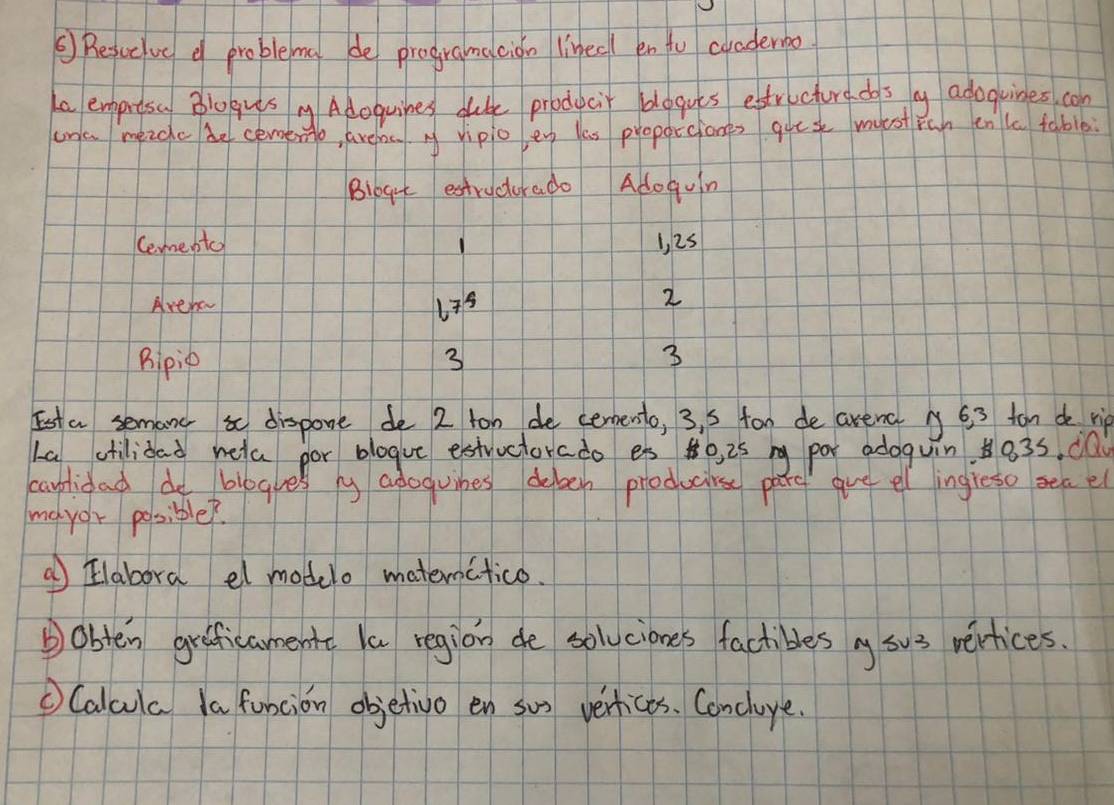 6) Resuelve el problema de programación lineal en tu cuaderno.
La empresa Bloques y Adoquines debe producir bloques estructurados y adoquines, con
una mezcla de cemento, arena y ripio, en las proporciones que se muestran en la tabla:
Bloque estructurado Adoquín
Cemento 1 1,25
Arena 1,75 2
Ripio 3 3
Esta semana se dispone de 2 ton de cemento, 3,5 ton de arena y 6,3 ton de rip
La utilidad neta por bloque estructurado es $0,25 y por adoquín $0,35. ¿Qu
cantidad de bloques y adoquines deben producirse para que el ingreso sea el
mayor posible?
a) Elabora el modelo matemático.
b) Obtén gráficamente la región de soluciones factibles y sus vértices.
c) Calcula la función objetivo en sus vértices. Concluye.